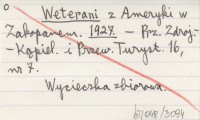 o
Weterani z Ameryki w
Zakopanem. 1927. – Prz. Zdroj.-
-Kąpiel. i Przew. Turyst. 16,
nr 7.
Wycieczka zbiorowa.
b7048/3094